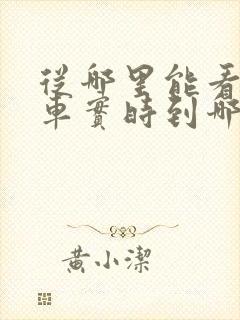 從哪里能看
車實時到哪
黄小潔